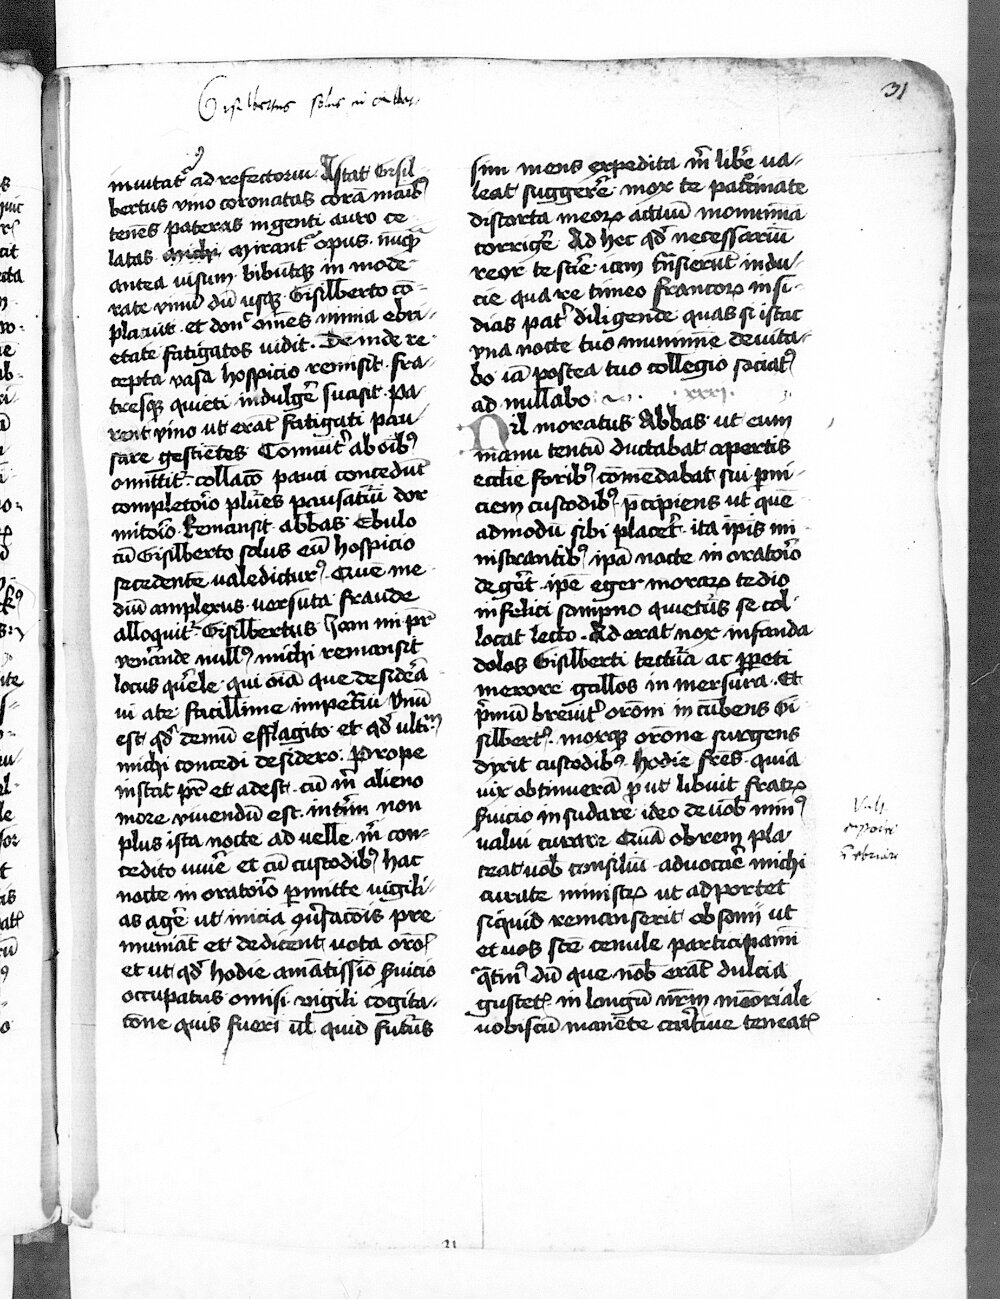 31
Gisilbertus solus
inuitatr ad refectoriu. Astat Gisil-
bertus vino coronatas corā manib
tenēs pateras ingenti auro ce-
latas michi Mirantr opus nūqꝫ
antea uisum bibūtqꝫ in mode-
rate vinū dū usqꝫ Gisilberto co-
placuit et donc om̄es nimia ebri-
etate fatigatos vidit. Deinde re-
cepta vasa hospicio remisit. fra-
tresqꝫ quieti indulgēr suasit. Pa-
rent vino ut erāt fatigati pau-
sare gestientes Conuiūr ab oībꝰ
omittitr. collacō pauci concedūt
completorio plures pausatiuū dor
mitorio. Remansit abbas Ebulo
cū Gisilberto solus eū hospicio
secedentē valedicturꝰ. Quē me-
diū amplexus uersuta fraude
alloquitr. Gisilbertus Iam mi pr
venerande nullꝰ michi remansit
locus querele qui oīa que desidera
ui a te facillime impetraui Vnū
est qd demū efflagito et qd ultim
michi concedi desidero. Prope
instat pr et adest. cū m alieno
more viuendū est. interim non
plus ista nocte ad uelle m con-
cedito uiuē et cū custodibꝰ hac
nocte in oratorio permitte uigili-
as agē ut inicia qrsacōis pre
muniāt et dedicent uota oro
et ut qd hodie amātissīo seruicio
occupatus omisi. vigili cogita-
cone quis fueri ul quid futurus
sim mens expedita m libē ua-
leat suggerē. mox te patrinate
distorta meoꝝ actuū monimīa
corrigē. Ad hec qd necessariū
reor te scīe. iam trāsierūt indu-
cie qua re timeo francoꝝ insi-
dias patr diligende quas si istac
vna nocte tuo munimine deuita-
bo iā postea tuo collegio sociatꝰ
ad nullabo. xxxi.
Nil moratus Abbas ut eum
manu tentū ductabat apertis
ecclie foribꝰ comēdabat sui perni-
ciem custodibꝰ precipiens ut quē
admodū sibi placet. ita ipis mi-
nistrantibꝰ ipā nocte in oratorio
degēt. ipē eger moraꝝ tedio
infelici sompno quieturus se col-
locat lecto. Ad erat nox infanda
dolos Gisilberti tectura ac perpeti
merore gallos in mersura. Et
primū breuitr oroni incūbens Gi-
silbertꝰ. moxqꝫ orone surgens
dixit custodibꝰ. hodie frēs quia
vix obtinuerā put libuit fratꝝ
seruicio insudare ideo de uob minꝰ
valui curare Quā obrem pla-
ceat uob consiliū aduocare michi
curate ministꝝ ut adportet
siquid remanserit obsonij ut
et uos scē cenule participamī
qtinꝰ dū que nob erat dulcia
gustetꝭ in longū nrm meoriale
uobiscū manente cariūe teneatꝭ